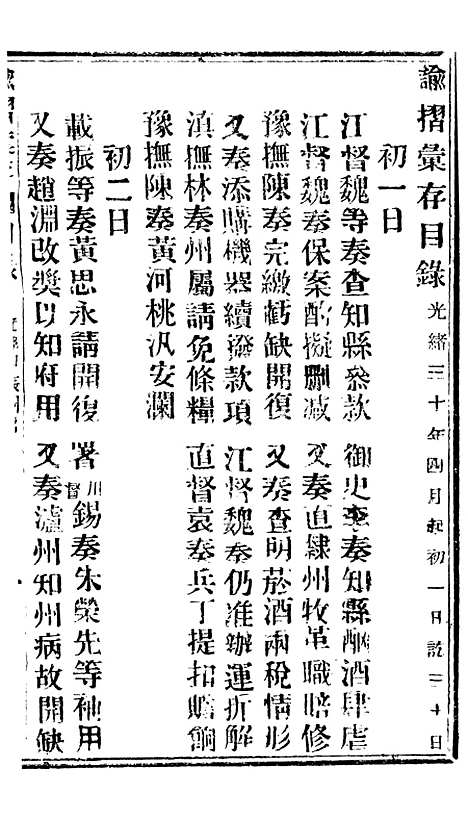 諭摺彙存目錄 光緒三十年四月起初一日訖三十日
初一日
江督魏等奏查知縣參款 御史李奏知縣酗酒肆虐
江督魏奏保案酌擬刪减 又奏直隸州牧革職賠修
豫撫陳奏完繳虧缺開復 又奏查明菸酒兩稅情形
又奏添購機器續撥款項 江督魏奏仍准辦運折解
滇撫林奏州屬請免條糧 直督袁奏兵丁提扣贍餉
豫撫陳奏黃河桃汛安瀾
初二日
載振等奏黃思永請開復 署川督錫奏朱榮先等袖用
又奏趙淵改獎以知府用 又奏瀘州知州病故開缺